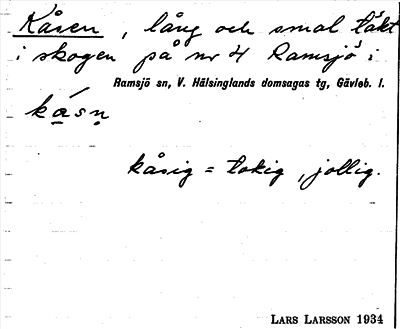 Kåsen, lång och smal täkt
i skogen på nr 4 Ramsjö i
Ramsjö sn, V. Hälsinglands domsagas tg, Gävleb. l.
kásn
kåsig = tokig, jollig.
LARS LARSSON 1934